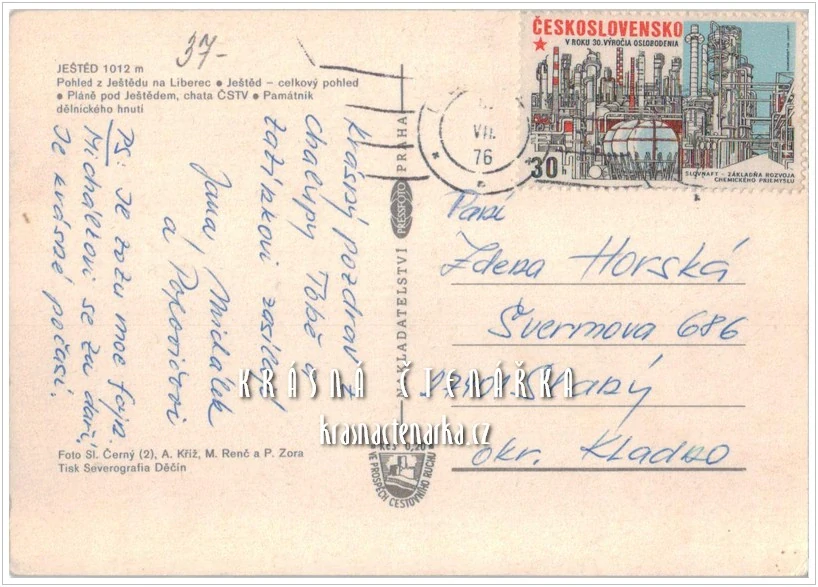 37-
JEŠTĚD 1012 m
Pohled z Ještědu na Liberec ● Ještěd – celkový pohled
● Pláně pod Ještědem, chata ČSTV ● Památník
dělnického hnutí
Krásný pozdrav z
chalupy Tobě a
zasílají
Jana, Michálek
a
PS: Je to zu moc fajn.
Michálkovi se zu daří,
Je krásné počasí.
Foto Sl. Černý (2), A. Kříž, M. Renč a P. Zora
Tisk Severografia Děčín
NAKLADATELSTVÍ PRESSFOTO PRAHA
Kčs 0,20
VE PROSPĚCH CESTOVNÍHO RUCHU
VII.
76
ČESKOSLOVENSKO
V ROKU 30. VÝROČIA OSLOBODENIA
30 h
SLOVNAFT - ZÁKLADŇA ROZVOJA
CHEMICKÉHO PRIEMYSLU
Paní
Zdena Horská
Švermova 686
okr. Kladno
KRÁSNÁ ČTENÁŘKA
krasnactenarka.cz